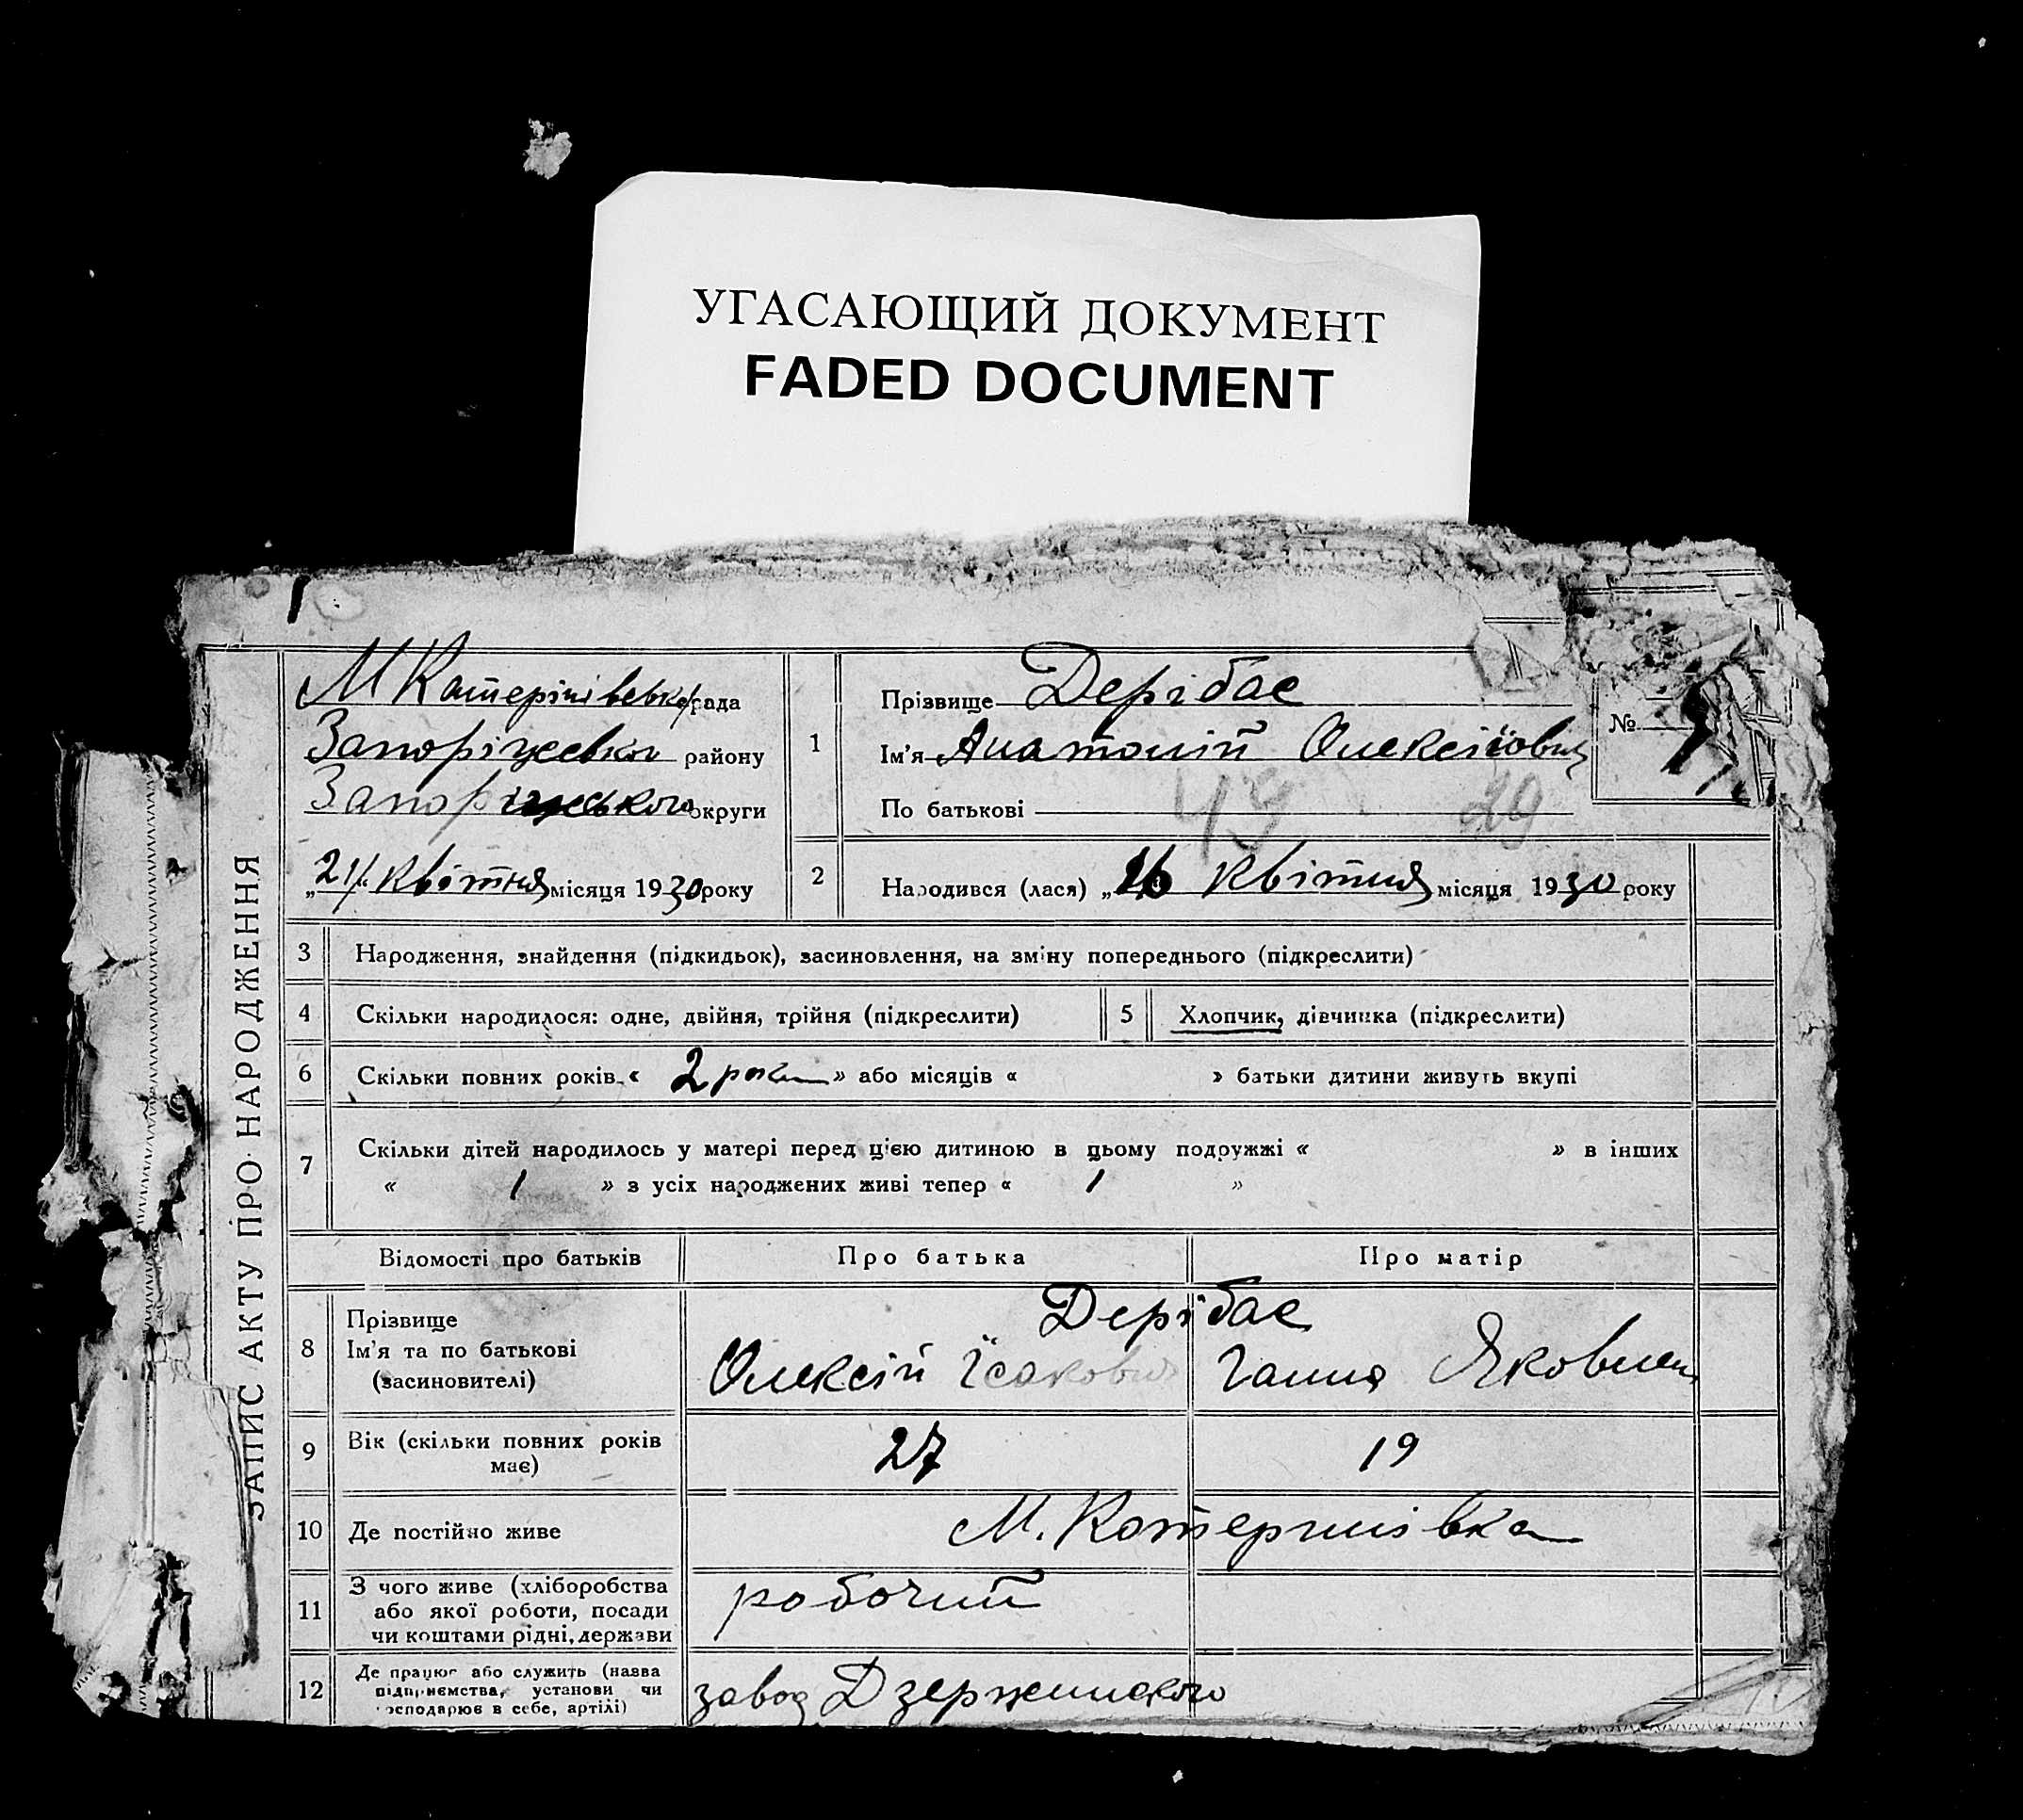 УГАСАЮЩИЙ ДОКУМЕНТ
FADED DOCUMENT
ЗАПИС АКТУ ПРО НАРОДЖЕННЯ
М Катерінівська рада
Запоріжського району
Запоріжського округи
„21“ квітня місяця 1930 року
1
Прізвище Дерібас
Ім'я Анатолій Олексійович
По батькові
49 29
№ 1
2 Народився (лася) „16 квітня місяця 1930 року
3 Народження, знайдення (підкидьок), засиновлення, на зміну попереднього (підкреслити)
4 Скільки народилося: одне, двійня, трійня (підкреслити) 5 Хлопчик, дівчинка (підкреслити)
6 Скільки повних років « 2 роки » або місяців « » батьки дитини живуть вкупі
7 Скільки дітей народилось у матері перед цією дитиною в цьому подружжі « » в інших
« 1 » з усіх народжених живі тепер « 1 »
Відомості про батьків Про батька Про матір
8 Прізвище Дерібас
Ім'я та по батькові Олексій Ісакович Ганна Яковлен
(засиновителі)
9 Вік (скільки повних років 27 19
має)
10 Де постійно живе М. Катеринівка
11 З чого живе (хліборобства робочий
або якої роботи, посади
чи коштами рідні, держави
12 Де працює або служить (назва завод Дзержинського
підприємства, установи чи
господарює в себе, артілі)